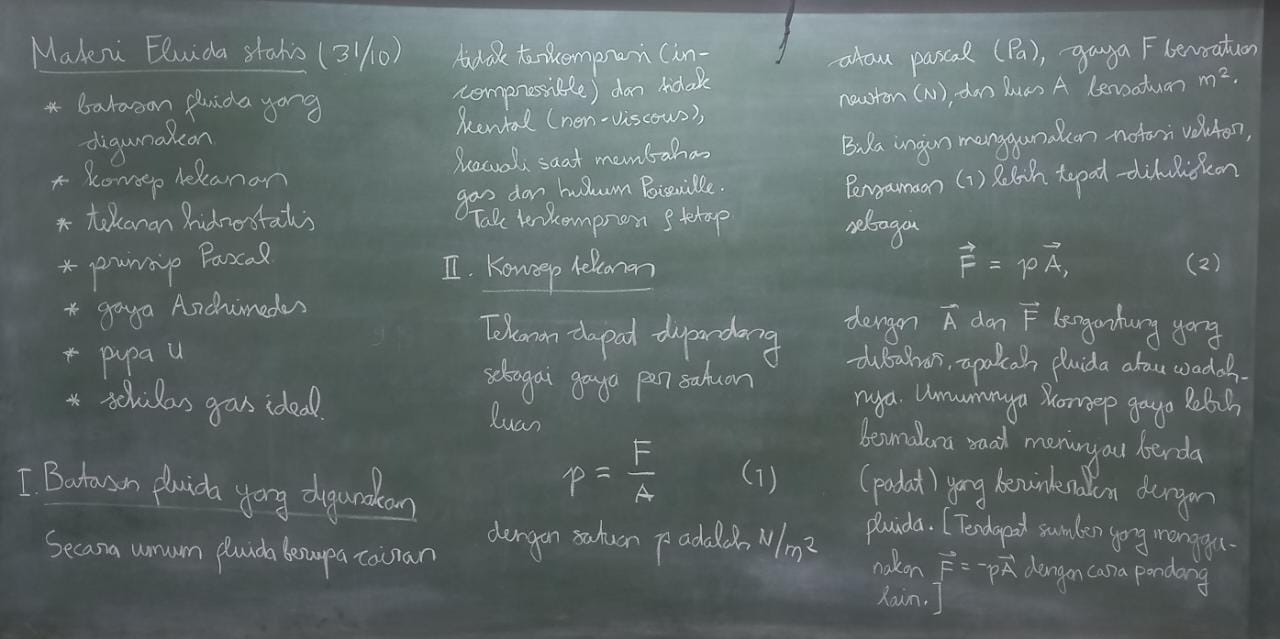 Materi Fluida statis (31/10)
* batasan fluida yang
digunakan
* konsep tekanan
* tekanan hidrostatis
* prinsip Pascal
* gaya Archimedes
* pipa U
* sekilas gas ideal.
I. Batasan fluida yang digunakan
Secara umum fluida berupa cairan
tidak terkompresi (in-
compressible) dan tidak
kental (non-viscous),
kecuali saat membahas
gas dan hukum Poiseuille.
Tak terkompresi ρ tetap
II. Konsep tekanan
Tekanan dapat dipandang
sebagai gaya per satuan
luas
p = F/A (1)
dengan satuan p adalah N/m²
atau pascal (Pa), gaya F bersatuan
newton (N), dan luas A bersatuan m².
Bila ingin menggunakan notasi vektor,
Persamaan (1) lebih tepat dituliskan
sebagai
F⃗ = p A⃗, (2)
dengan A⃗ dan F⃗ bergantung yang
dibahas, apakah fluida atau wadah-
nya. Umumnya konsep gaya lebih
bermakna saat meninjau benda
(padat) yang berinteraksi dengan
fluida. [Terdapat sumber yang menggu-
nakan F⃗ = -pA⃗ dengan cara pandang
lain.]